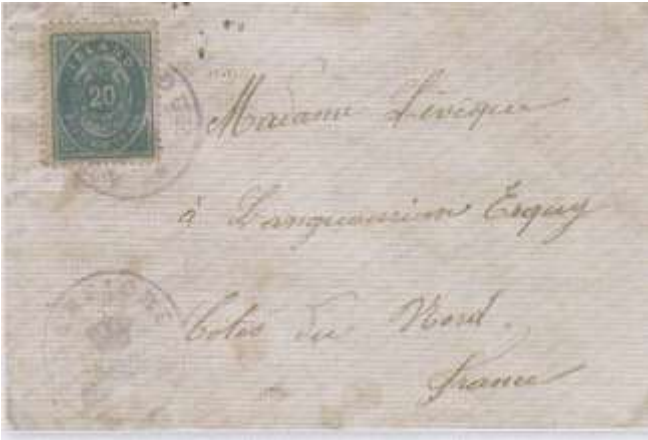 ISLAND
20
Madame Lévêque
à Langueurian Erquy
Cotes du Nord.
France